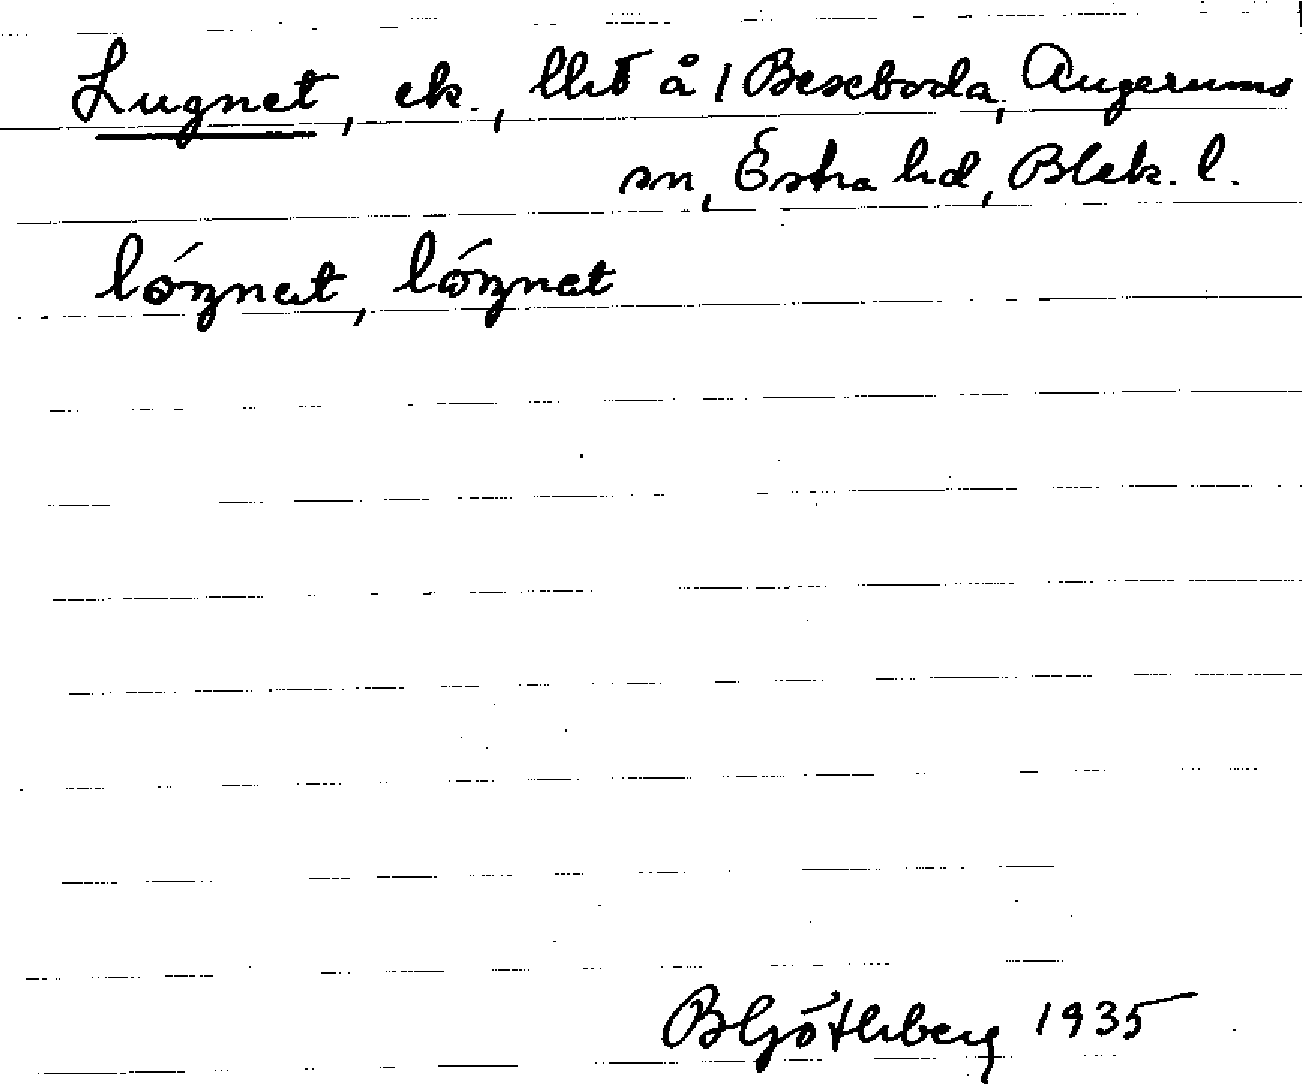 Lugnet, ek., lht å 1 Bexeboda, Augerums
sn, Östra hd, Blek. l.
lóŋnet, lóŋnet
B Göthberg 1935